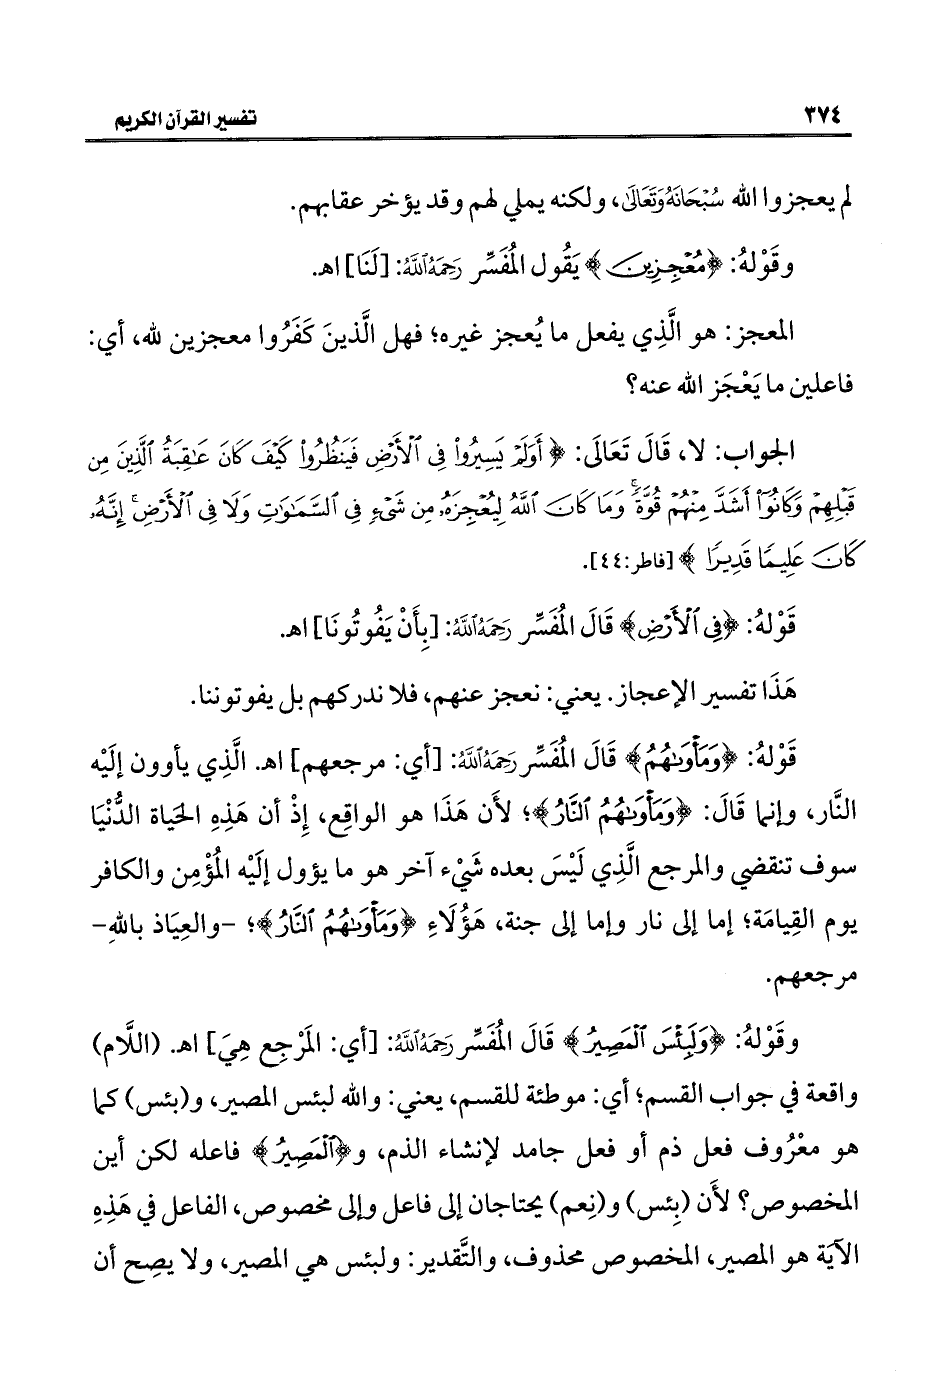 ٣٧٤ تفسير القرآن الكريم
لم يعجزوا الله سُبْحَانَهُ وَتَعَالَى، ولكنه يملي لهم وقد يؤخر عقابهم.
وقَوْلهُ: ﴿مُعْجِزِينَ﴾ يَقُول المُفَسِّر رَحِمَهُ اللَّهُ: [لَنَا] اهـ.
المعجز: هو الَّذِي يفعل ما يُعجز غيره؛ فهل الَّذينَ كَفَرُوا معجزين لله، أي:
فاعلين ما يَعْجَز الله عنه؟
الجواب: لا، قَالَ تَعَالَى: ﴿أَوَلَمْ يَسِيرُواْ فِي ٱلْأَرْضِ فَيَنظُرُواْ كَيْفَ كَانَ عَٰقِبَةُ ٱلَّذِينَ مِن
قَبْلِهِمْ وَكَانُوٓاْ أَشَدَّ مِنْهُمْ قُوَّةً ۚ وَمَا كَانَ ٱللَّهُ لِيُعْجِزَهُۥ مِن شَيْءٍ فِي ٱلسَّمَٰوَٰتِ وَلَا فِي ٱلْأَرْضِ ۚ إِنَّهُۥ
كَانَ عَلِيمًا قَدِيرًا﴾ [فاطر:٤٤].
قَوْلهُ: ﴿فِي ٱلْأَرْضِ﴾ قَالَ المُفَسِّر رَحِمَهُ اللَّهُ: [بِأَنْ يَفُوتُونَا] اهـ.
هَذَا تفسير الإعجاز. يعني: نعجز عنهم، فلا ندركهم بل يفوتوننا.
قَوْلهُ: ﴿وَمَأْوَىٰهُمُ﴾ قَالَ المُفَسِّر رَحِمَهُ اللَّهُ: [أي: مرجعهم] اهـ. الَّذِي يأوون إلَيْه
النَّار، وإنما قَالَ: ﴿وَمَأْوَىٰهُمُ ٱلنَّارُ﴾؛ لأَن هَذَا هو الواقِع، إِذْ أن هَذِهِ الحَياة الدُّنْيَا
سوف تنقضي والمرجع الَّذِي لَيْسَ بعده شَيْء آخر هو ما يؤول إلَيْه المُؤْمِن والكافر
يوم القِيامَة؛ إما إلى نار وإما إلى جنة، هَؤُلَاءِ ﴿وَمَأْوَىٰهُمُ ٱلنَّارُ﴾؛ -والعِيَاذ باللهِ-
مرجعهم.
وقَوْلهُ: ﴿وَلَبِئْسَ ٱلْمَصِيرُ﴾ قَالَ المُفَسِّر رَحِمَهُ اللَّهُ: [أي: المَرْجِع هِيَ] اهـ. (اللَّام)
واقعة في جواب القسم؛ أي: موطئة للقسم، يعني: والله لبئس المصير، و(بئس) كما
هو معْرُوف فعل ذم أو فعل جامد لإنشاء الذم، و﴿ٱلْمَصِيرُ﴾ فاعله لكن أين
المخصوص؟ لأَن (بِئس) و(نِعم) يحتاجان إلى فاعل وإلى مخصوص، الفاعل في هَذِهِ
الآيَة هو المصير، المخصوص محذوف، والتَّقدير: ولبئس هي المصير، ولا يصِح أن